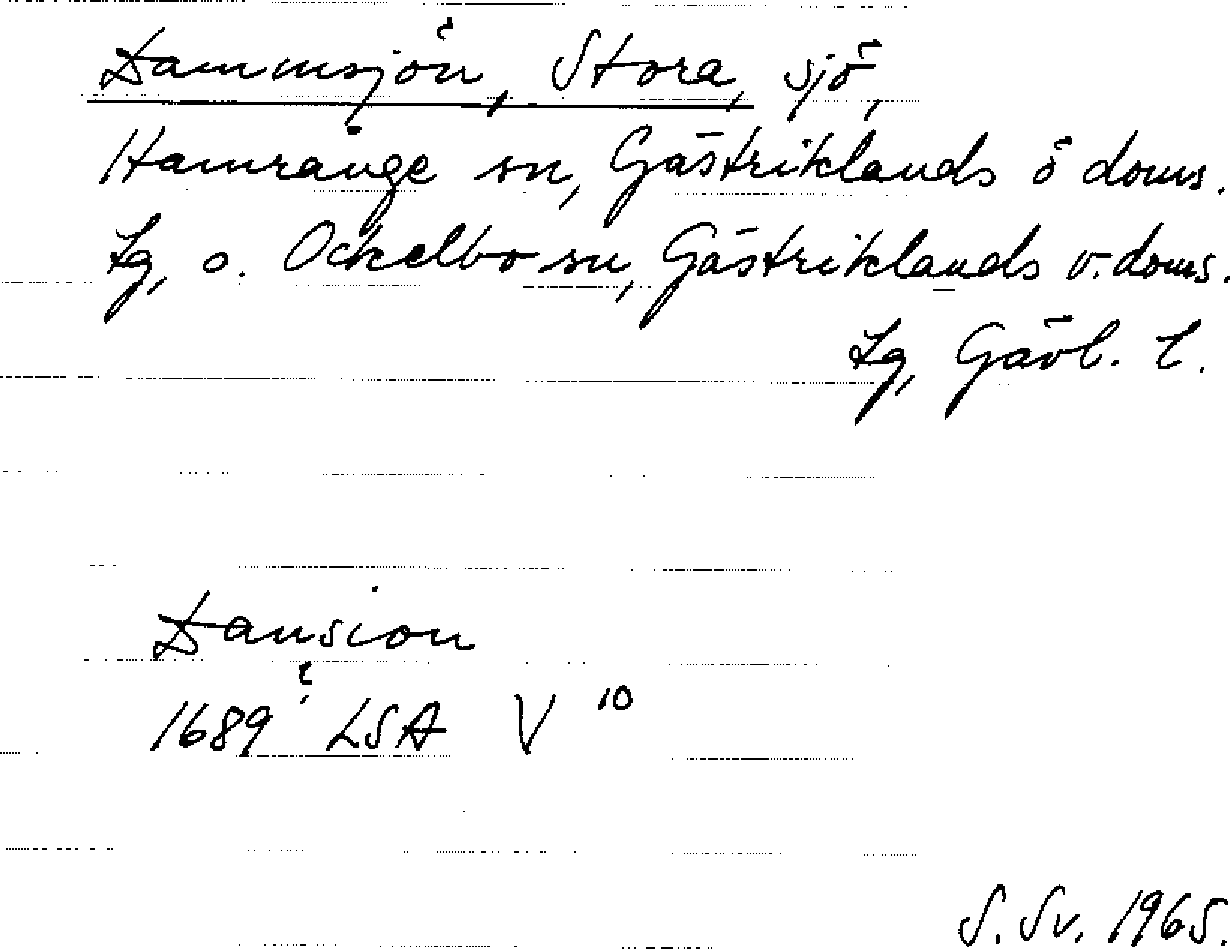 Dammsjön, Stora, sjö,
Hamrånge sn, Gästriklands ö doms.
lg, o. Ockelbo sn, Gästriklands v. doms.
lg, Gävl. l.
Damsion
1689 LSA V 10
S. Sv. 1965.